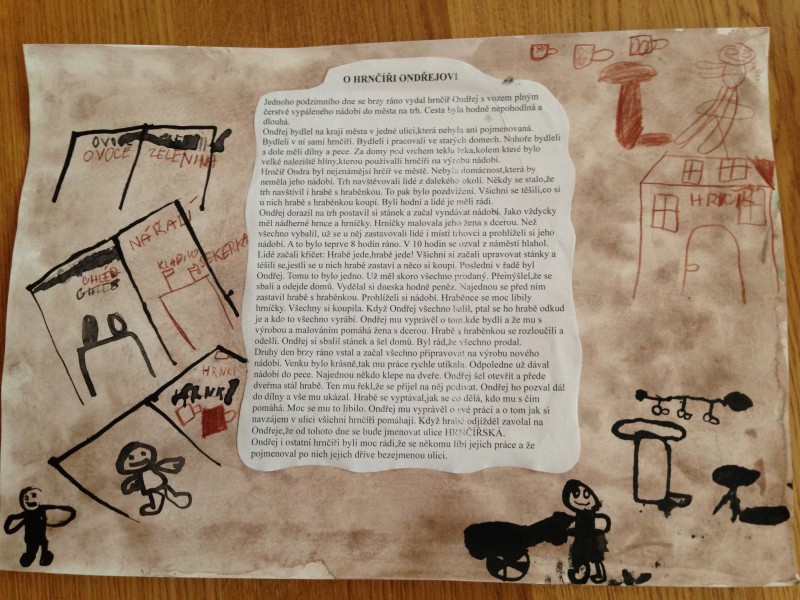 O HRNČÍŘI ONDŘEJOVI
Jednoho podzimního dne se brzy ráno vydal hrnčíř Ondřej s vozem plným
čerstvě vypáleného nádobí do města na trh. Cesta byla hodně nepohodlná a
dlouhá.
Ondřej bydlel na kraji města v jedné ulici,která nebyla ani pojmenovaná.
Bydleli v ní samí hrnčíři. Bydleli i pracovali ve starých domech. Nahoře bydleli
a dole měli dílny a pece. Za domy pod vrchem tekla řeka,kolem které bylo
velké naleziště hlíny,kterou používalli hrnčíři na výrobu nádobí.
Hrnčíř Ondra byl nejznámější hrčíř ve městě. Nebyla domácnost,která by
neměla jeho nádobí. Trh navštěvovali lidé z dalekého okolí. Někdy se stalo,že
trh navštívil i hrabě s hraběnkou. To pak bylo pozdvižení. Všichni se těšili,co si
u nich hrabě s hraběnkou koupí. Byli hodní a lidé je měli rádi.
Ondřej dorazil na trh postavil si stánek a začal vyndávat nádobí. Jako vždycky
měl nádherné hrnce a hrníčky. Hrníčky malovala jeho žena s dcerou. Než
všechno vybalil, už se u něj zastavovali lidé i místí trhovci a prohlíželi si jeho
nádobí. A to bylo teprve 8 hodin ráno. V 10 hodin se ozval z náměstí hlahol.
Lidé začali křičet: Hrabě jede,hrabě jede! Všichni si začali upravovat stánky a
těšili se,jestli se u nich hrabě zastaví a něco si koupí. Poslední v řadě byl
Ondřej. Tomu to bylo jedno. Už měl skoro všechno prodaný. Přemýšlel,že se
sbalí a odejde domů. Vydělal si dneska hodně peněz. Najednou se před ním
zastavil hrabě s hraběnkou. Prohlíželi si nádobí. Hraběnce se moc líbily
hrníčky. Všechny si koupila. Když Ondřej všechno balil, ptal se ho hrabě odkud
je a kdo to všechno vyrábí. Ondřej mu vyprávěl o tom,kde bydlí a že mu s
výrobou a malováním pomáhá žena s dcerou. Hrabě s hraběnkou se rozloučili a
odešli. Ondřej si sbalil stánek a šel domů. Byl rád,že všechno prodal.
Druhý den brzy ráno vstal a začal všechno připravovat na výrobu nového
nádobí. Venku bylo krásně,tak mu práce rychle utíkala. Odpoledne už dával
nádobí do pece. Najednou někdo klepe na dveře. Ondřej šel otevřít a přede
dveřma stál hrabě. Ten mu řekl,že se přijel na něj podívat. Ondřej ho pozval dál
do dílny a vše mu ukázal. Hrabě se vyptával,jak se co dělá, kdo mu s čím
pomáhá. Moc se mu to líbilo. Ondřej mu vyprávěl o své práci a o tom jak si
navzájem v ulici všichni hrnčíři pomáhají. Když hrabě odjížděl zavolal na
Ondřeje,že od tohoto dne se bude jmenovat ulice HRNČÍŘSKÁ.
Ondřej i ostatní hrnčíři byli moc rádi,že se někomu líbí jejich práce a že
pojmenoval po nich jejich dříve bezejmenou ulici.
OVOCE
ZELENINA
NÁŘADÍ
KLADIVO
SEKERKA
CHLÉB
HRNKY
HRNKY